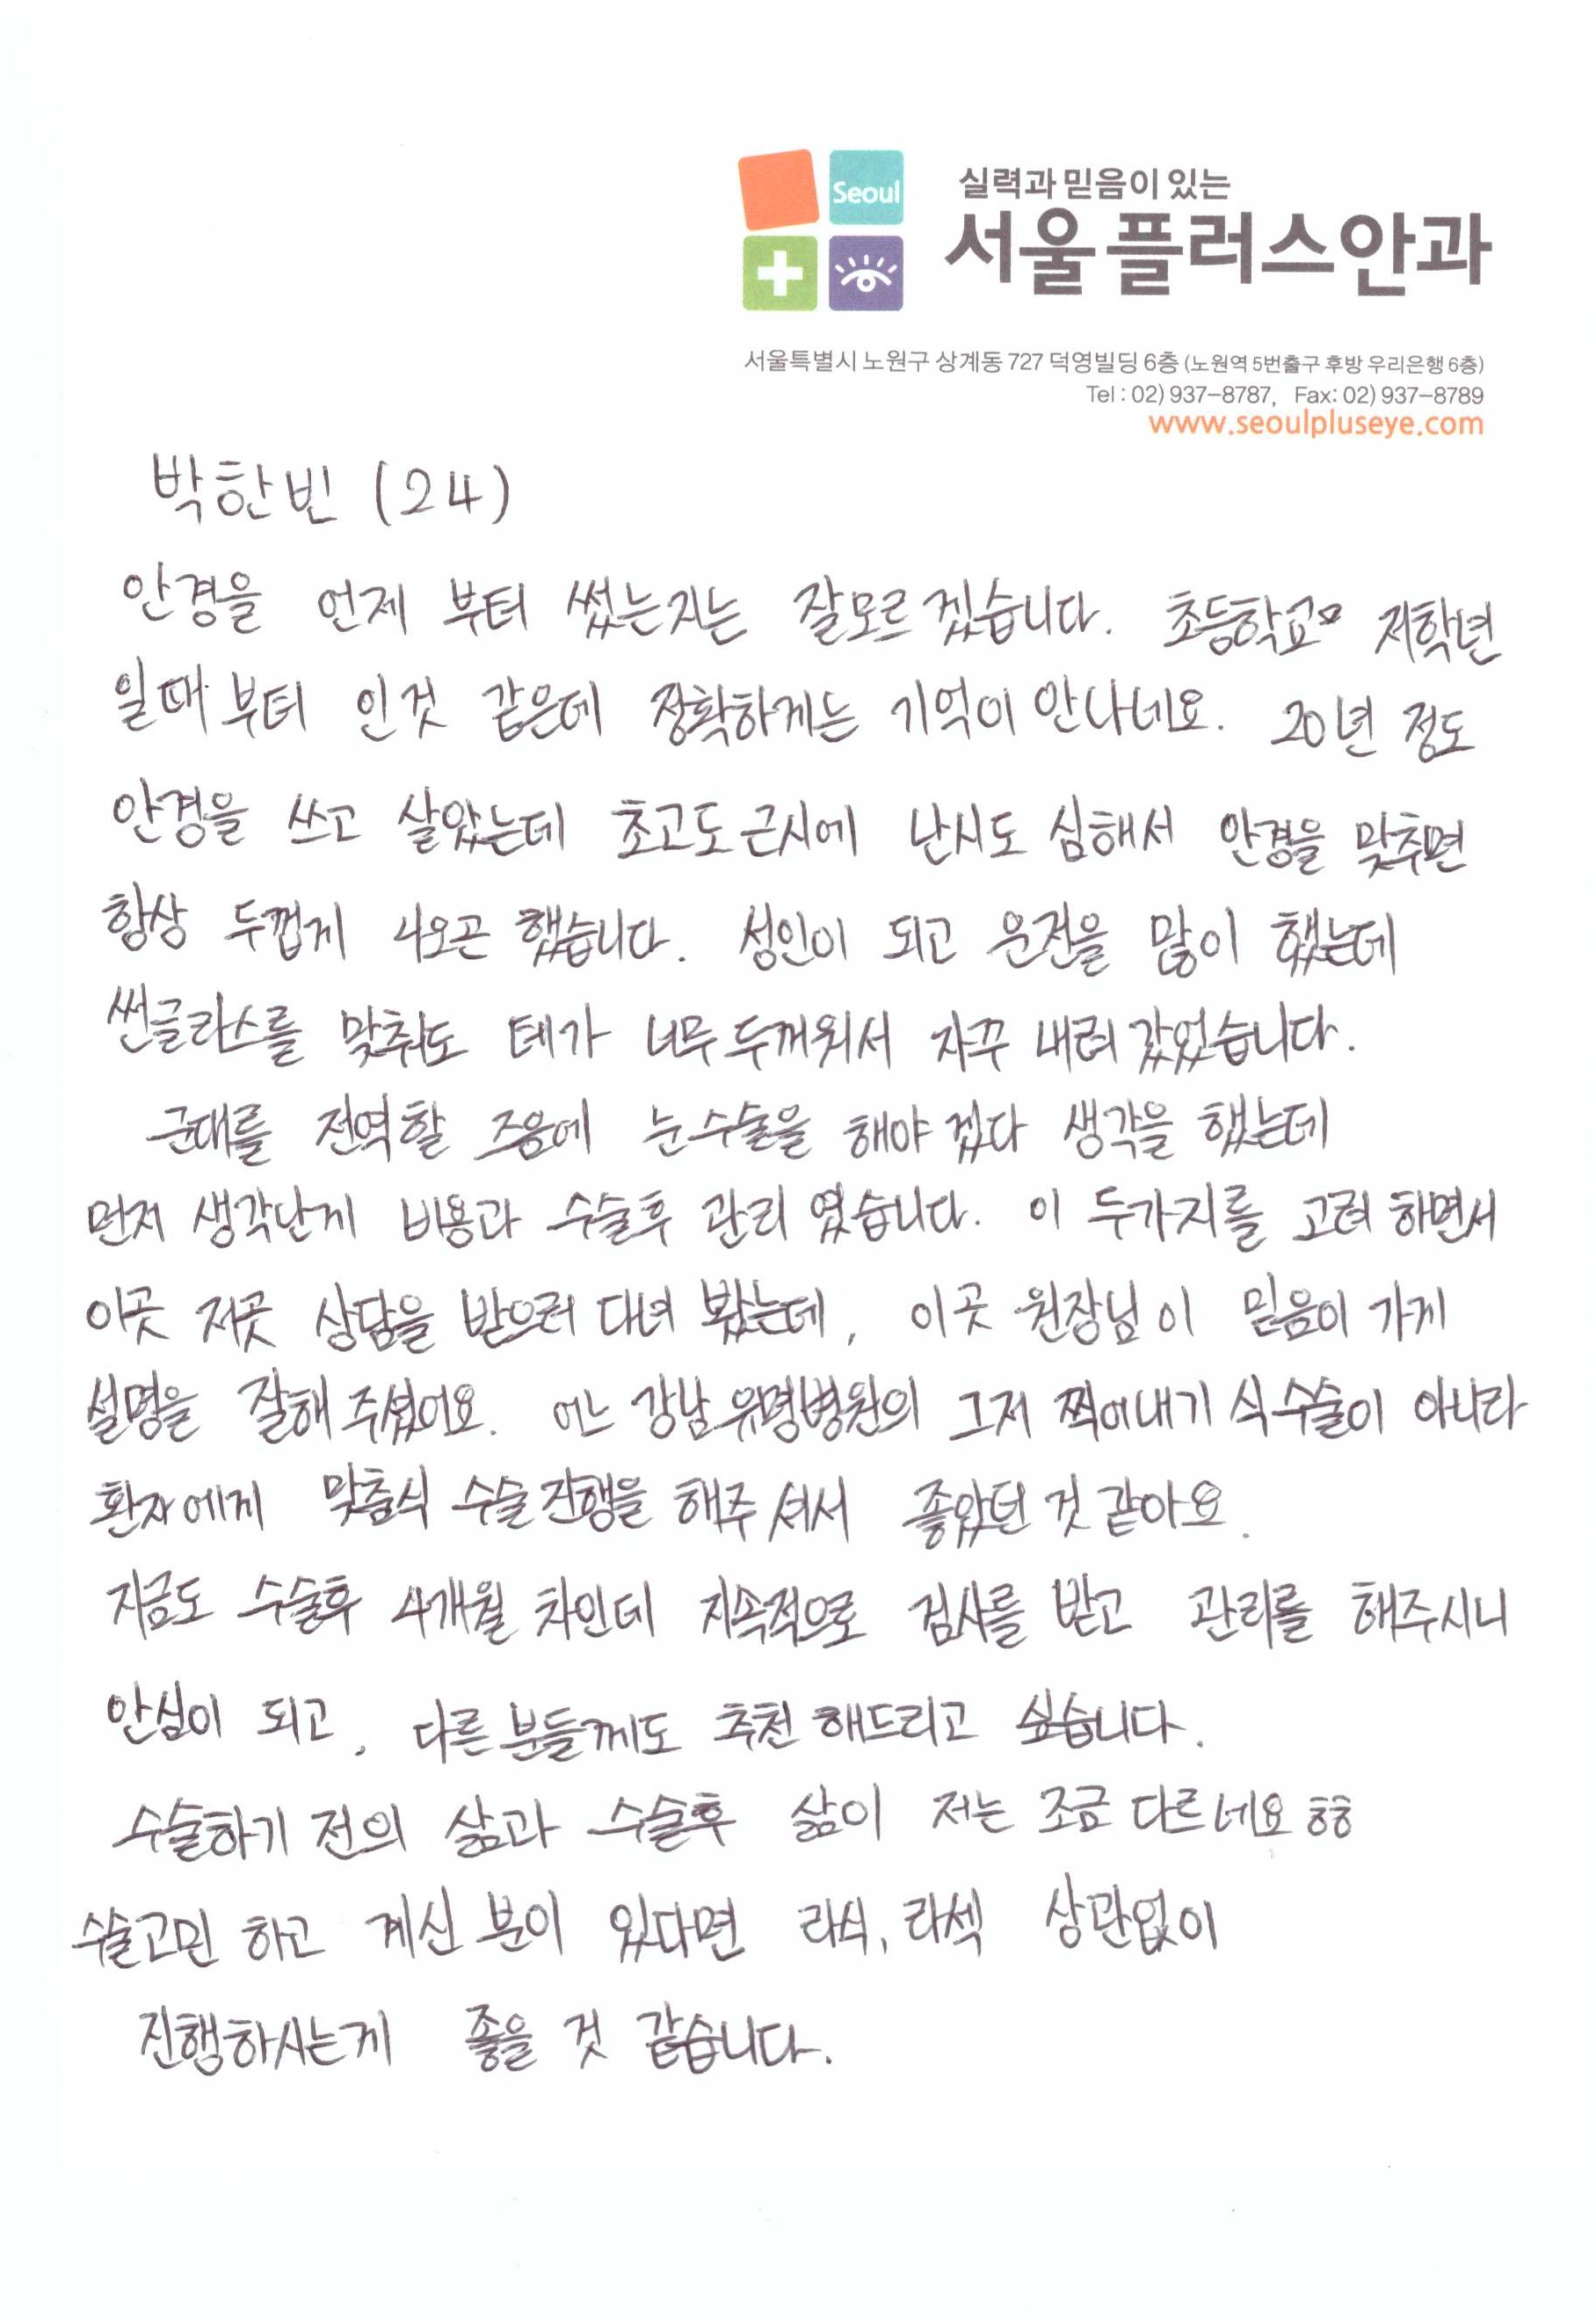 Seoul
실력과 믿음이 있는
서울플러스안과
서울특별시 노원구 상계동 727 덕영빌딩 6층 (노원역 5번출구 후방 우리은행 6층)
Tel : 02) 937-8787, Fax: 02) 937-8789
www.seoulpluseye.com
박한빈 (24)
안경을 언제 부터 썼는지는 잘모르겠습니다. 초등학교 저학년
일때 부터 인것 같은데 정확하게는 기억이 안나네요. 20년 정도
안경을 쓰고 살았는데 초고도근시에 난시도 심해서 안경을 맞추면
항상 두껍게 나오곤 했습니다. 성인이 되고 운전을 많이 했는데
썬글라스를 맞춰도 테가 너무 두꺼워서 자꾸 내려갔었습니다.
군대를 전역할 즈음에 눈수술을 해야겠다 생각을 했는데
먼저 생각난게 비용과 수술후 관리 였습니다. 이 두가지를 고려 하면서
이곳 저곳 상담을 받으러 다녀 봤는데, 이곳 원장님이 믿음이 가게
설명을 잘해 주셨어요. 어느 강남 유명병원의 그저 찍어내기 식 수술이 아니라
환자에게 맞춤식 수술진행을 해주셔서 좋았던 것 같아요.
지금도 수술후 4개월 차인데 지속적으로 검사를 받고 관리를 해주시니
안심이 되고, 다른 분들께도 추천 해드리고 싶습니다.
수술하기 전의 삶과 수술후 삶이 저는 조금 다르네요 ㅎㅎ
수술고민 하고 계신 분이 있다면 라식, 라섹 상관없이
진행하시는게 좋을 것 같습니다.